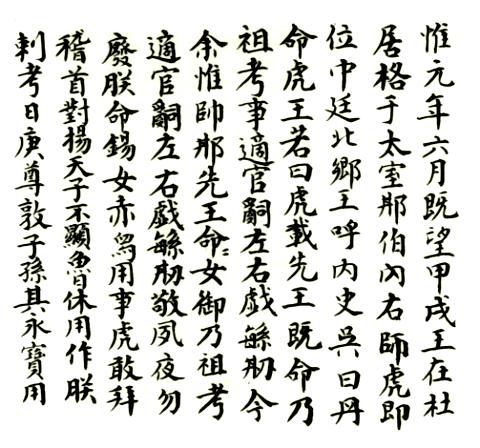 惟元年六月既望甲戌王在杜
居格于太室邢伯內右師虎即
位中廷北鄉王呼內史吳曰冊
命虎王若曰虎載先王既命乃
祖考事適官嗣左右戯緐刱今
余惟帥邢先王命〻女御乃祖考
適官嗣左右戯緐刱敬夙夜勿
廢朕命錫女赤舄用事虎敢拜
稽首對揚天子不顯魯休用作朕
剌考日庚尊敦子孫其永寶用